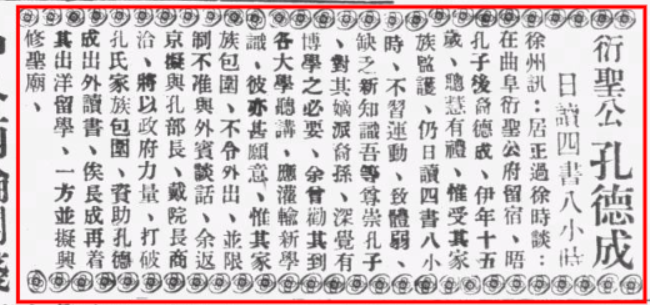 衍聖公 孔德成
日讀四書八小時
徐州訊：居正過徐時談：
在曲阜衍聖公府留宿、晤
孔子後裔德成、伊年十五
歲、聰慧有禮、惟受其家
族監護、仍日讀四書八小
時、不習運動、致體弱、
缺乏新知識吾等尊崇孔子
、對其嫡派裔孫、深覺有
博學之必要、余曾勸其到
各大學聽講、應灌輸新學
識、彼亦甚願意、惟其家
族包圍、不令外出、並限
制不准與外賓談話、余返
京擬與孔部長、戴院長商
洽、將以政府力量、打破
孔氏家族包圍、資助孔德
成出外讀書、俟長成再着
其出洋留學、一方並擬興
修聖廟、